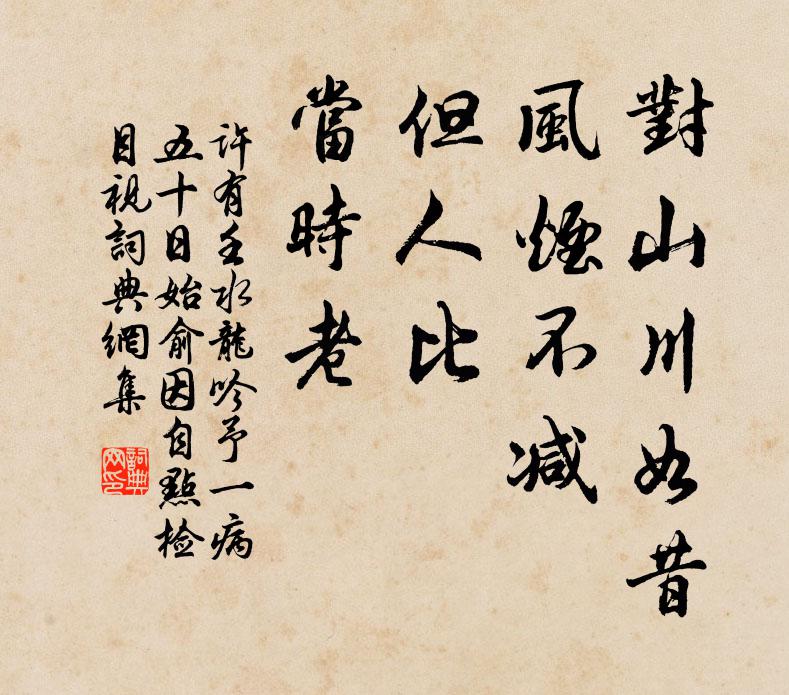 對山川如昔
風煙不減
但人比
當時老
許有壬水龍吟予一病
五十日始俞因自點檢
目視詞典網集
詞典網印